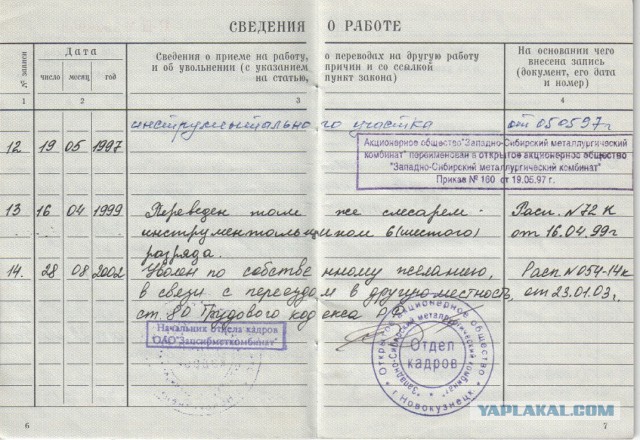 СВЕДЕНИЯ О РАБОТЕ
№ записи
Дата
число месяц год
Сведения о приеме на работу, о переводах на другую работу
и об увольнении (с указанием причин и со ссылкой
на статью, пункт закона)
На основании чего
внесена запись
(документ, его дата
и номер)
1 2 3 4
инструментального участка от 050597г
12 19 05 1997
Акционерное общество "Западно-Сибирский металлургический
комбинат" переименован в открытое акционерное общество
"Западно-Сибирский металлургический комбинат"
Приказ № 160 от 19.05.97 г.
13 16 04 1999 Переведен там же слесарем- Расп. N72 К
инструментальщиком 6(шестого) от 16.04.99г
разряда.
14. 28 08 2002 Уволен по собственному желанию, Расп N054-14к
в связи с переездом в другую местность, от 23.01.03г.
ст. 80 Трудового кодекса РФ
Начальник отдела кадров
"ОАО"Запсибметкомбинат"
Открытое акционерное общество
"Западно-Сибирский металлургический комбинат"
Отдел
кадров
г. Новокузнецк
6 7
YAPLAKAL.COM